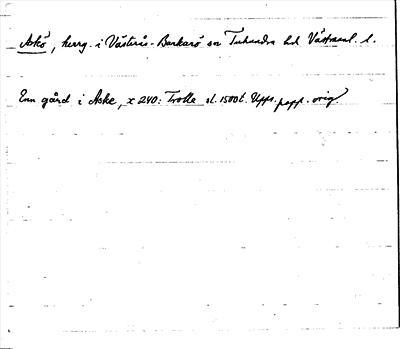 Askö, herrg. i Västerås-Barkarö sn Tuhundra hd Västmanl. l.
Enn gård i Aske, x 240: Trolle sl. 1500t. Upps. papp. orig.